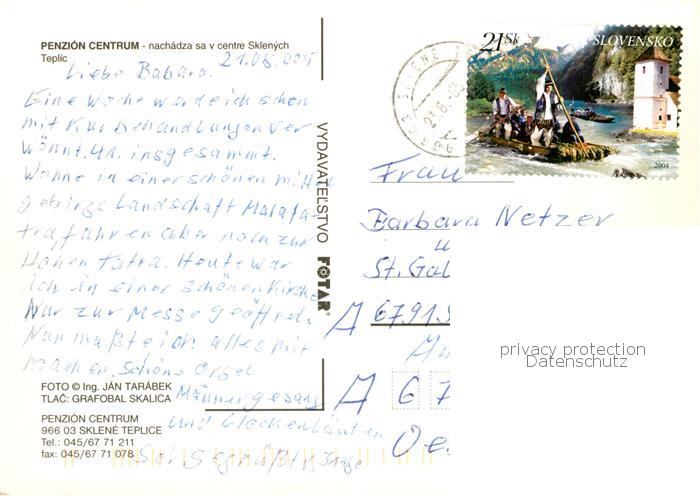 PENZIÓN CENTRUM - nachádza sa v centre Sklených
Teplíc
21.08.005
Liebe Babara.
Eine Woche werde ich schon
mit Kur behandlungen ver
wönnt. 41. insgesammt.
Wohne in einer schönen mittel
gebirgs Landschaft Malafa-
tra fahren aber noch zur
Hohen Tatra. Heute war
ich in einer schönen Kirche
Nur zur Messe geöffnet.
Nun maßte ich alles mit
machen. Schöne Orgel
Männergesang
und Glockenläuten
Sei gegrüßt
FOTO © Ing. JÁN TARÁBEK
TLAČ: GRAFOBAL SKALICA
PENZIÓN CENTRUM
966 03 SKLENÉ TEPLICE
Tel.: 045/67 71 211
fax: 045/67 71 078
VYDAVATEĽSTVO FOTAR
21 Sk SLOVENSKO
2004
SKLENÉ
Frau
Barbara Netzer
St. Gal
A 6791
A 67
Oe
privacy protection
Datenschutz